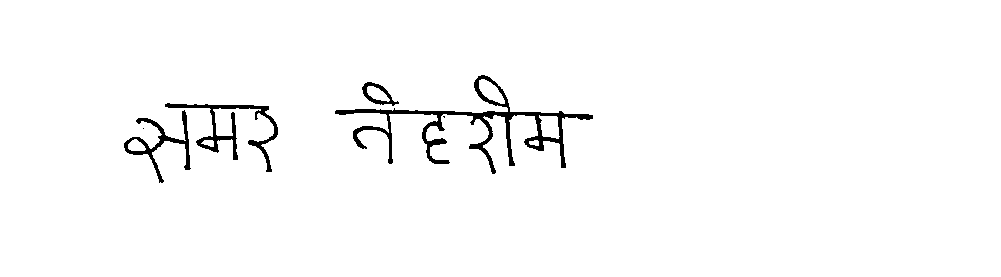 समर तेहरोम